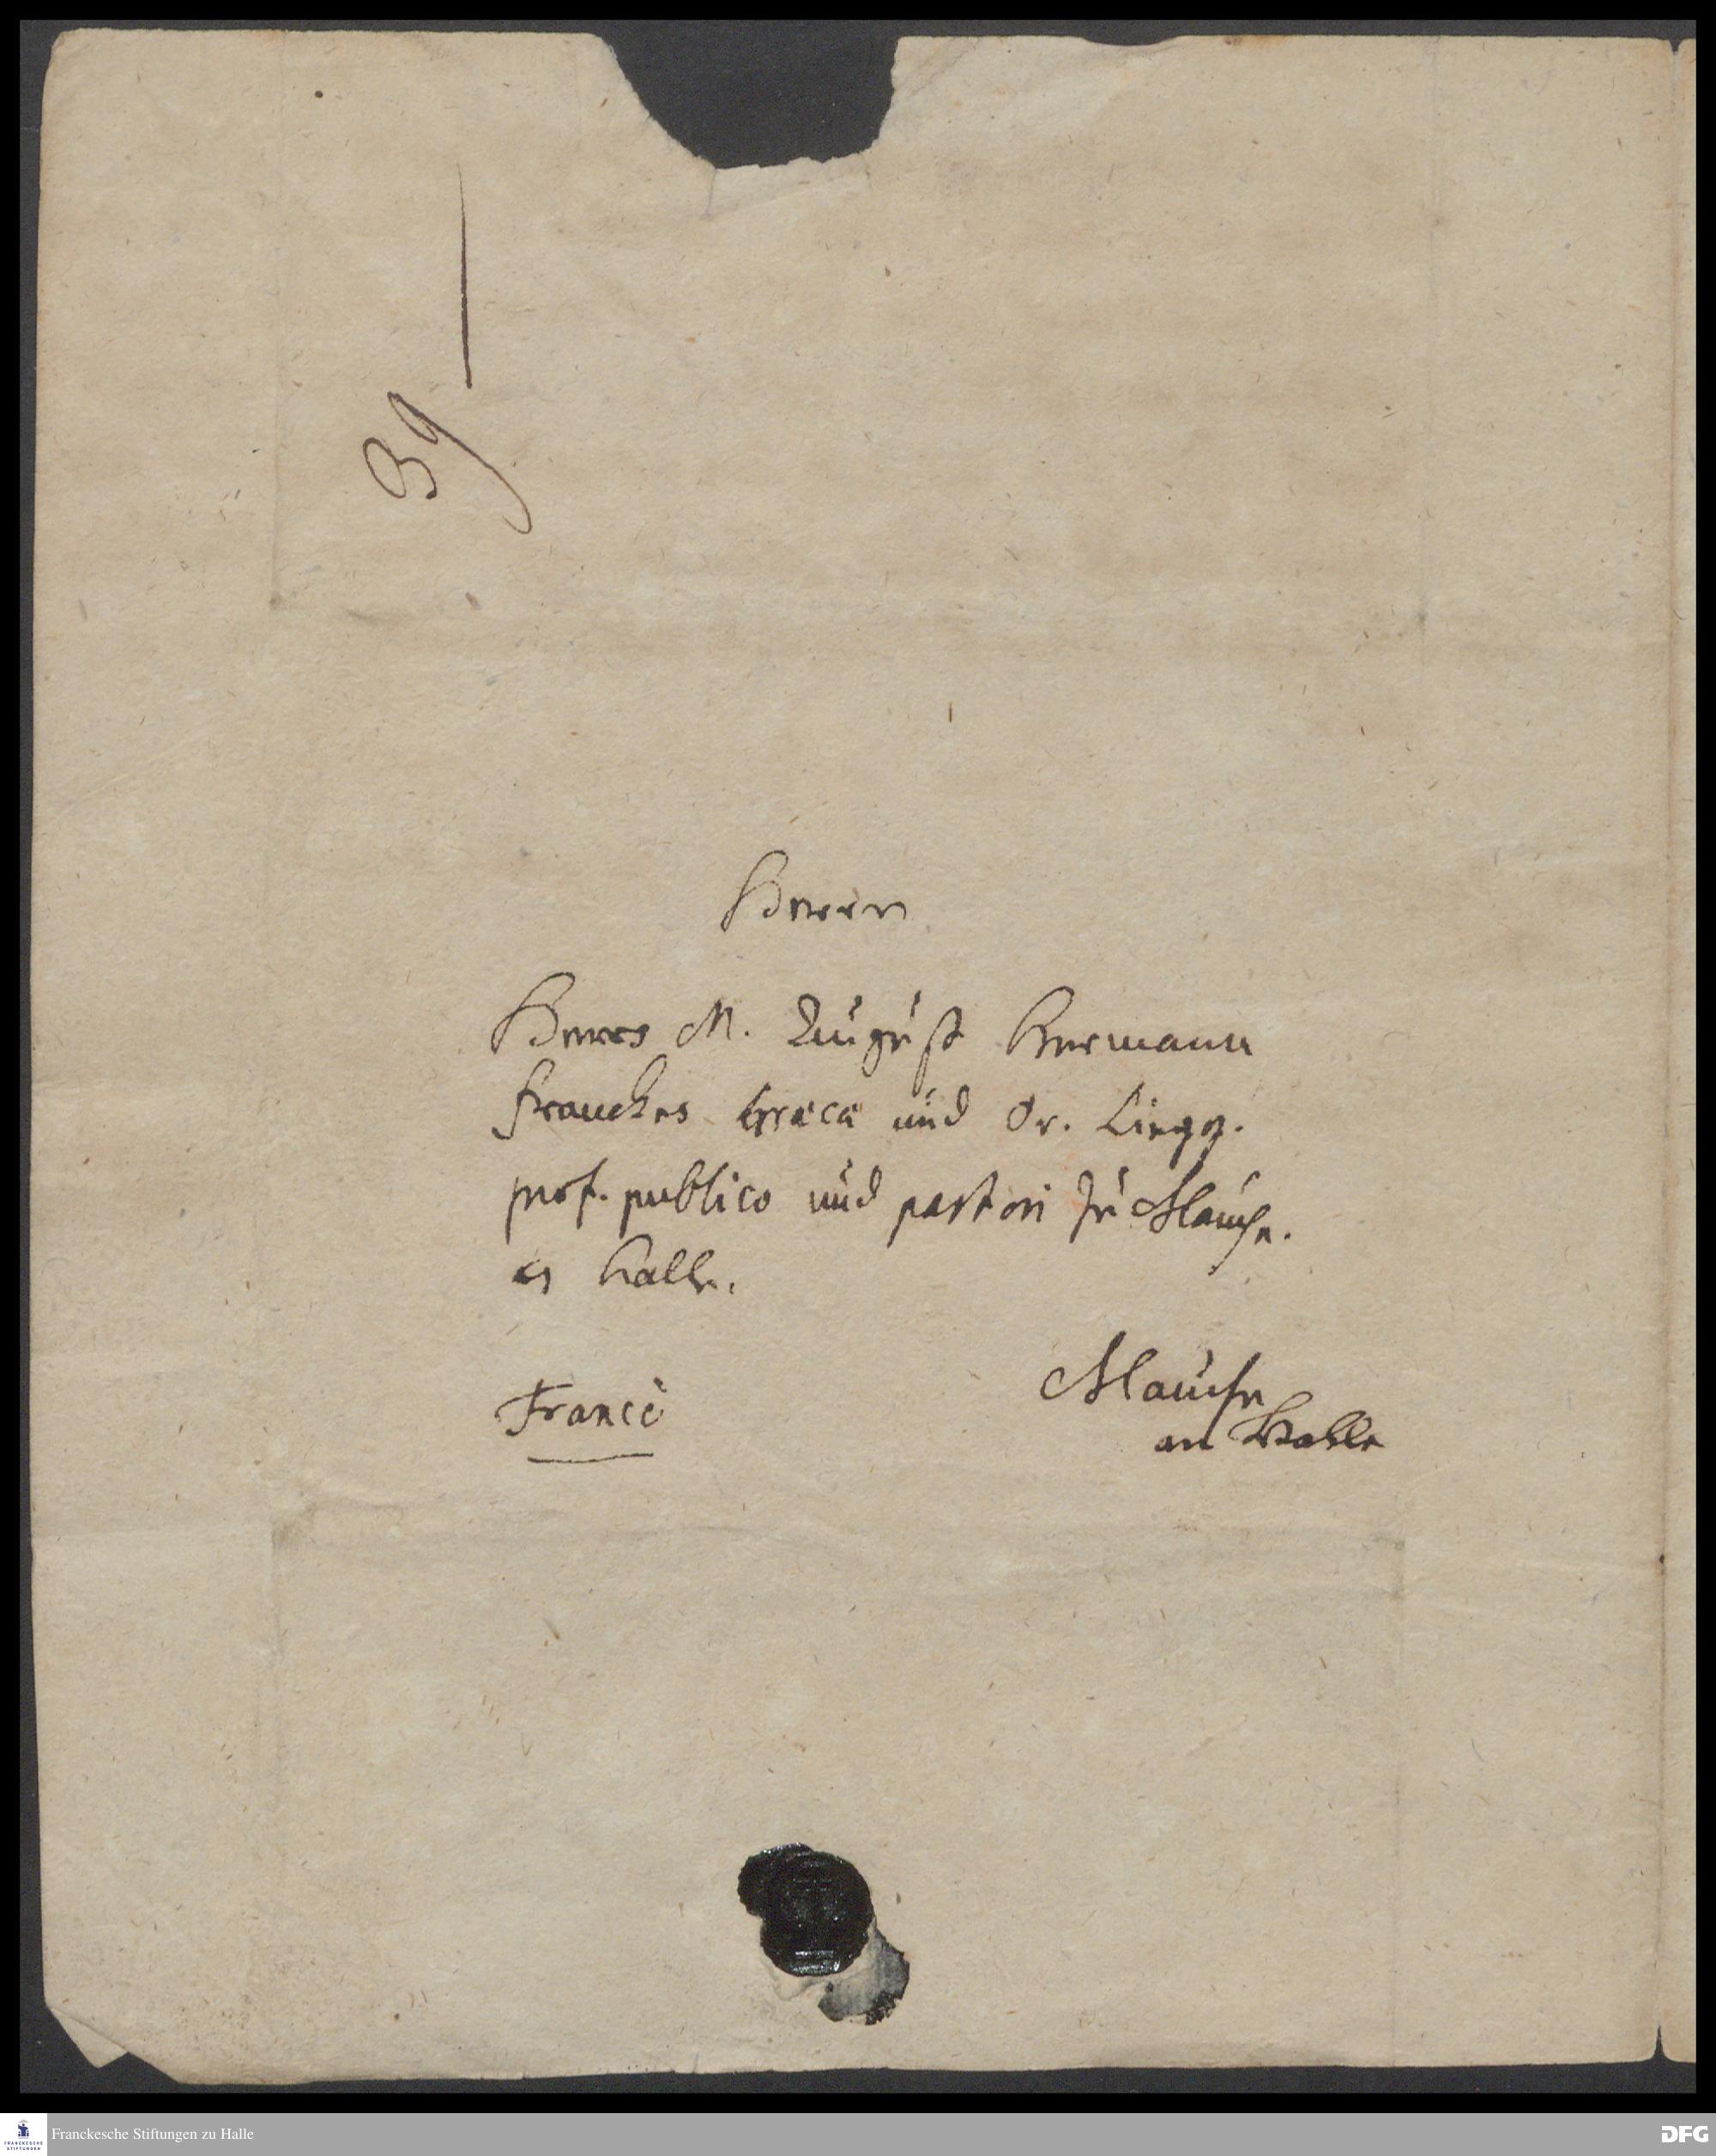 39
Herrn
Herrn M. August Hermann
Francken Graecae und Or. Lingg.
prof. publico und pastori zu Glauche.
an Halle.
Francò
Glauche
an Halle
Franckesche Stiftungen zu Halle
FRANCKESCHE
STIFTUNGEN
DFG